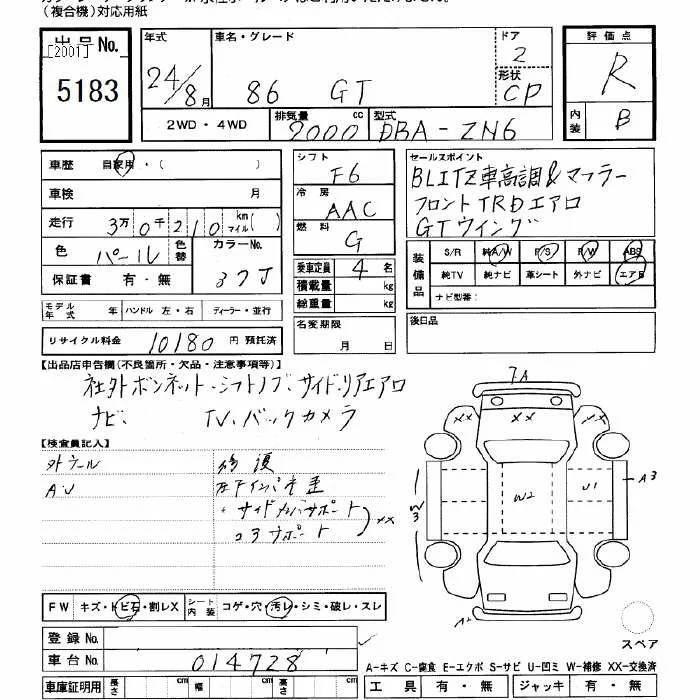 （複合機）対応用紙
出品No.
[2001]
5183
年式
24/8月
車名・グレード
86 GT
ドア
2
形状
CP
評価点
R
内装
B
2WD・4WD
排気量 cc
2000
型式
DBA-ZN6
車歴 自家用・( )
車検 月
走行 3万0千210 km マイル( )
色 パール 色替 カラーNo. 37J
保証書 有・無
シフト
F6
冷房
AAC
燃料
G
乗車定員 4 名
積載量 kg
総重量 kg
セールスポイント
BLITZ車高調&マフラー
フロントTRDエアロ
GTウイング
装備品
S/R 純A/W P/S P/W ABS
純TV 純ナビ 革シート 外ナビ エアB
ナビ型番：
モデル年式 年 ハンドル 左・右 ディーラー・並行
名変期限
月 日
後日品
リサイクル料金 10180 円 預託済
【出品店申告欄(不良箇所・欠品・注意事項等)】
社外ボンネット・シフトノブ・サイド・リアエアロ
ナビ・TV・バックカメラ
【検査員記入】
外ワール
AU
修復
左右インパネ歪
サイドメンバサポート
コアサポート
XX
7A
XX
XX
W2
U1
A3
W3
A2
FW キズ・トビ石・割レX シート内装 コゲ・穴・汚レ・シミ・破レ・スレ
登録No.
車台No. 014728
スペア
A-キズ C-腐食 E-エクボ S-サビ U-凹ミ W-補修 XX-交換済
車庫証明用 長さ cm 幅 cm 高さ cm
工具 有・無 ジャッキ 有・無